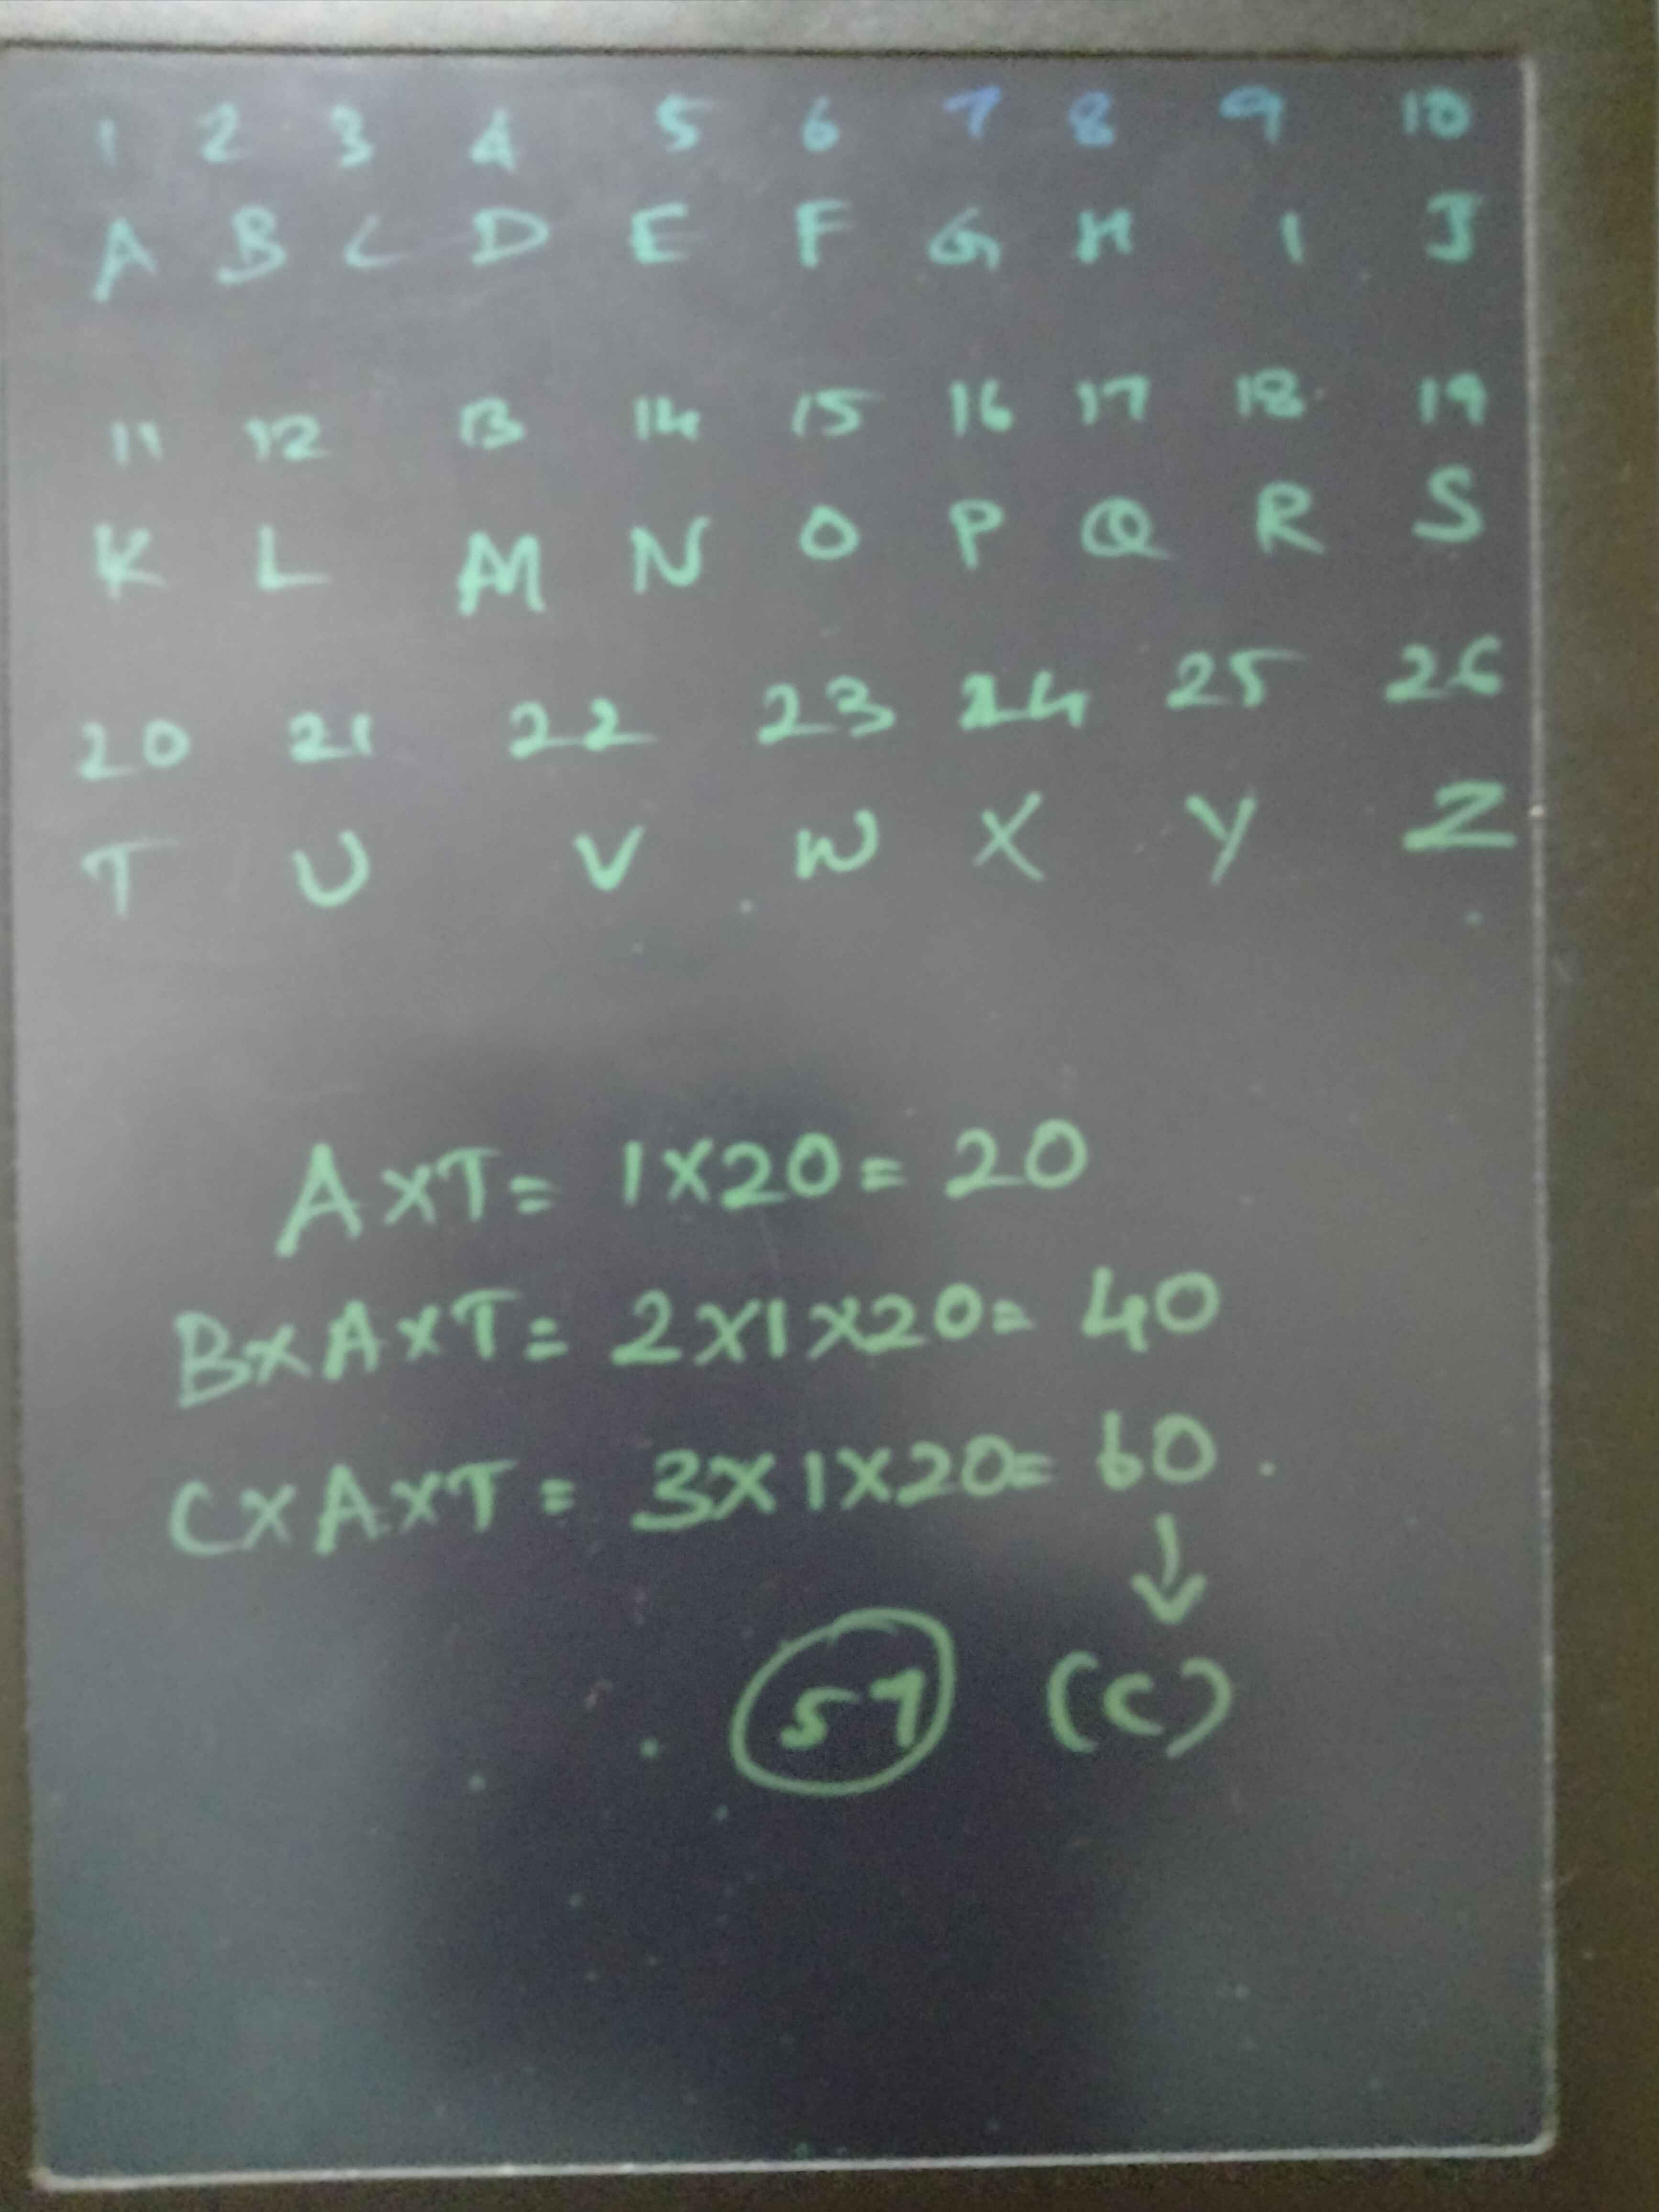 1 2 3 4 5 6 7 8 9 10
A B C D E F G H I J
11 12 13 14 15 16 17 18 19
K L M N O P Q R S
20 21 22 23 24 25 26
T U V W X Y Z
A×T= 1×20= 20
B×A×T= 2×1×20= 40
C×A×T= 3×1×20= 60.
↓
57 (C)